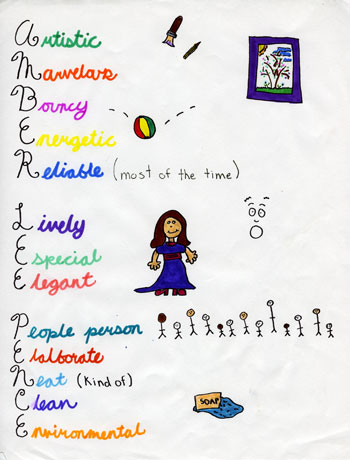 Artistic
Marvelous
Bouncy
Energetic
Reliable (most of the time)
Lively
Especial
Elegant
People person
Elalborate
Neat (kind of)
Clean
SOAP
Environmental